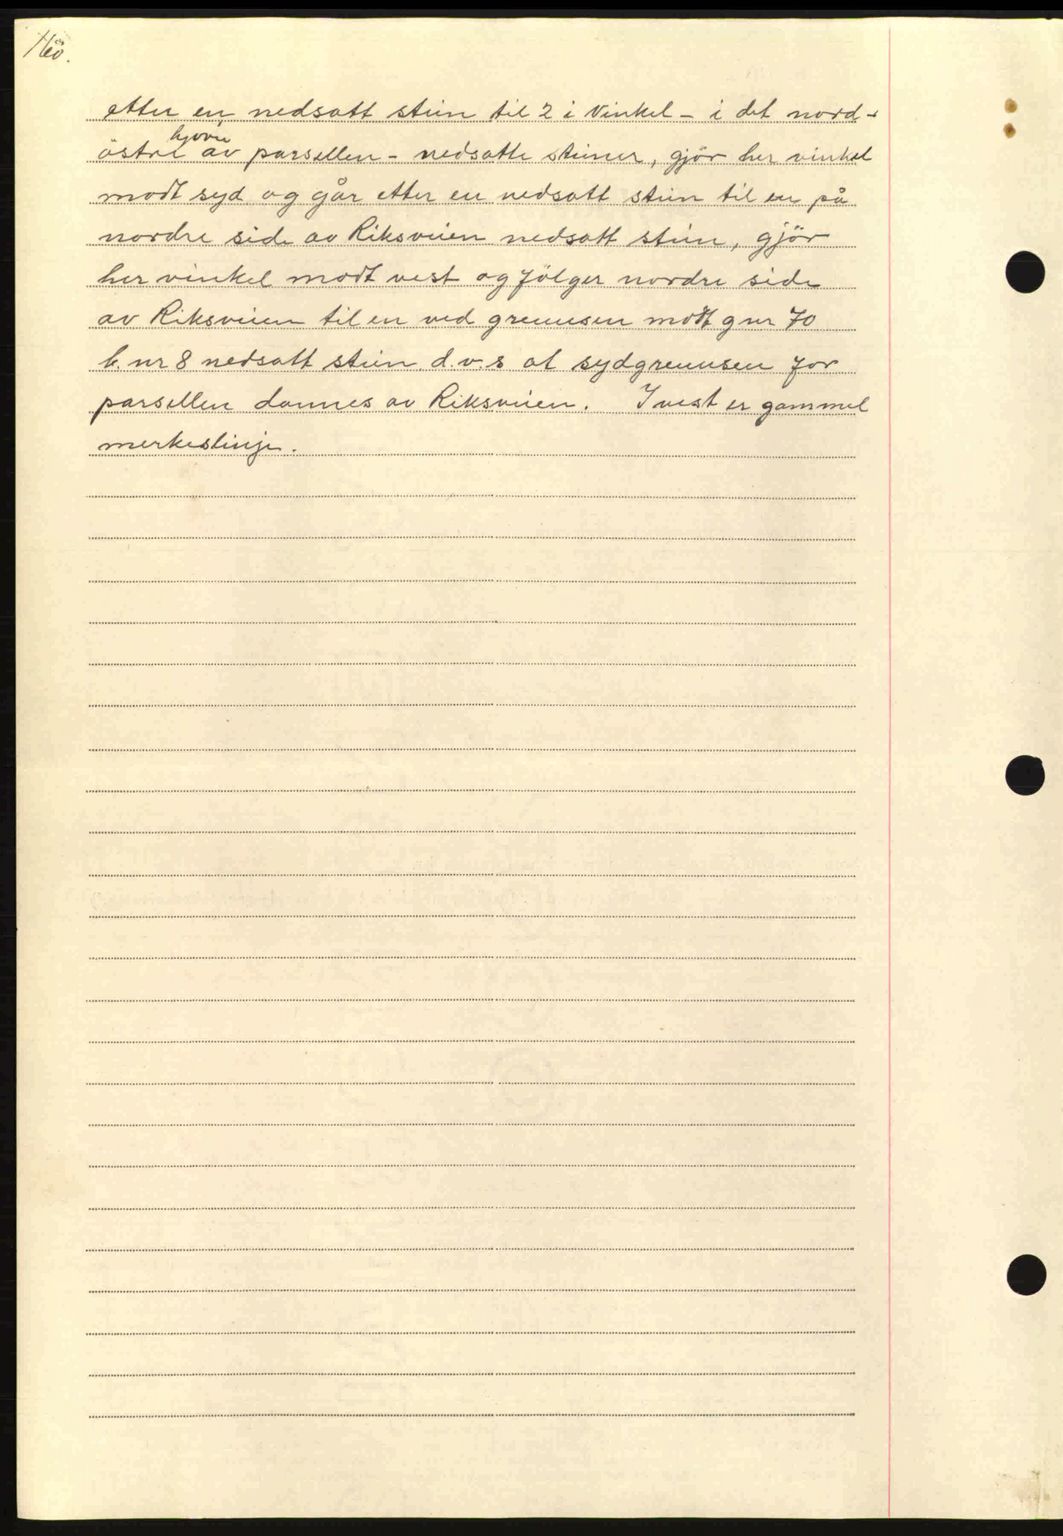 160.
etter en nedsatt stein til 2 i Vinkel - i det nord-
hjørne
östre av parsellen - nedsatte steiner, gjör her vinkel
modt syd og går etter en nedsatt stein til en på
nordre side av Riksveien nedsatt stein, gjör
her vinkel modt vest og fölger nordre side
av Riksveien til en ved grensen modt gnr 70
b.nr 8 nedsatt stein d.v.s at sydgrensen for
parsellen dannes av Riksveien. I vest er gammel
merkeslinje.